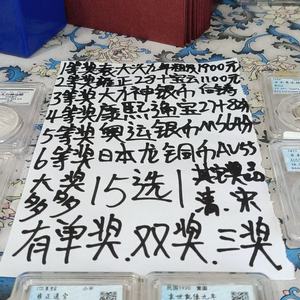 1等奖袁大头九年精发1900元
2等奖雍正23+宝泉1100元
3等奖大才神银币
4等奖康熙通宝27+8分
5等奖奥运银币MS69分
6等奖日本龙铜币AU55
大奖
多多
15选1
清.宋
有单奖.双奖.三奖
雍正通宝
民国1920